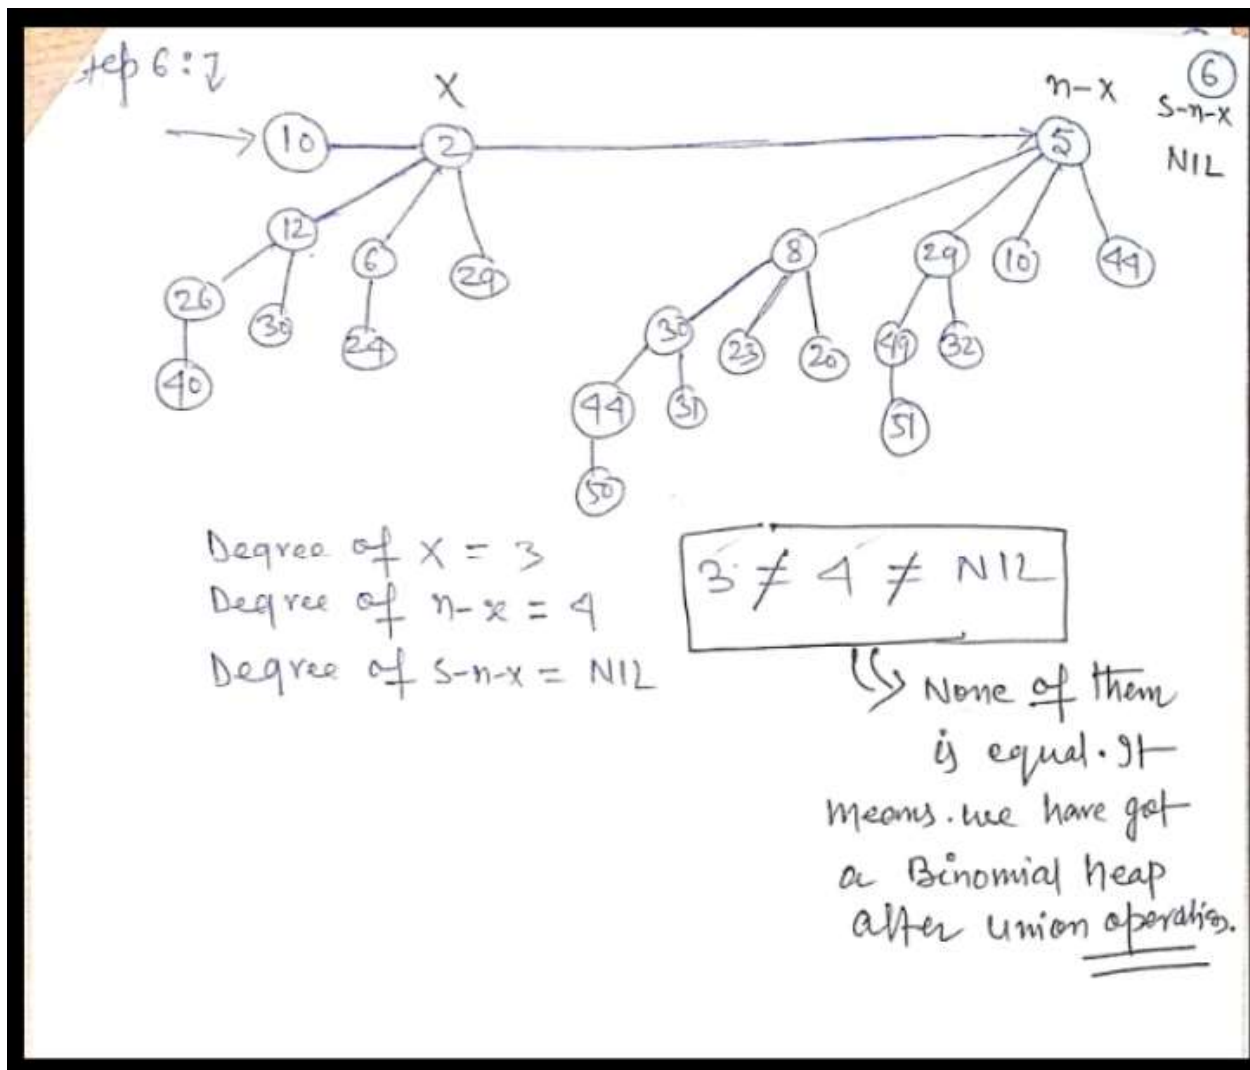 tep 6:
X
n-x
6
s-n-x
NIL
10
2
5
12
6
29
8
29
10
44
26
30
24
30
23
20
49
32
40
44
31
51
50
Degree of x = 3
Degree of n-x = 4
Degree of s-n-x = NIL
3 ≠ 4 ≠ NIL
None of them
is equal. It
means. we have got
a Binomial heap
after union operation.